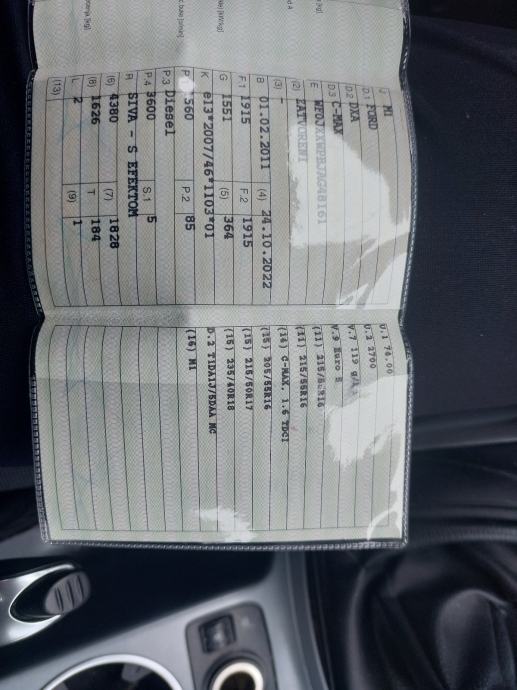 J M1
D.1 FORD
D.2 DXA
D.3 C-MAX
E
(2) ZATVORENI
(3) -
B 01.02.2011 (4) 24.10.2022
F.1 1915 F.2 1915
G 1551 (5) 364
K e13*2007/46*1103*01
P.1 1560 P.2 85
P.3 Diesel
P.4 3600 S.1 5
R SIVA - S EFEKTOM
(6) 4380 (7) 1828
(8) 1626 T 184
L 2 (9) 1
(13)
U.1 74.00
U.2 2700
V.7 119
V.9 Euro 5
(11) 215/55R16
(11) 215/55R16
(14) C-MAX, 1.6 TDCI
(15) 205/55R16
(15) 215/50R17
(15) 235/40R18
D.2 T1DA1J/5DAA MC
(16) M1